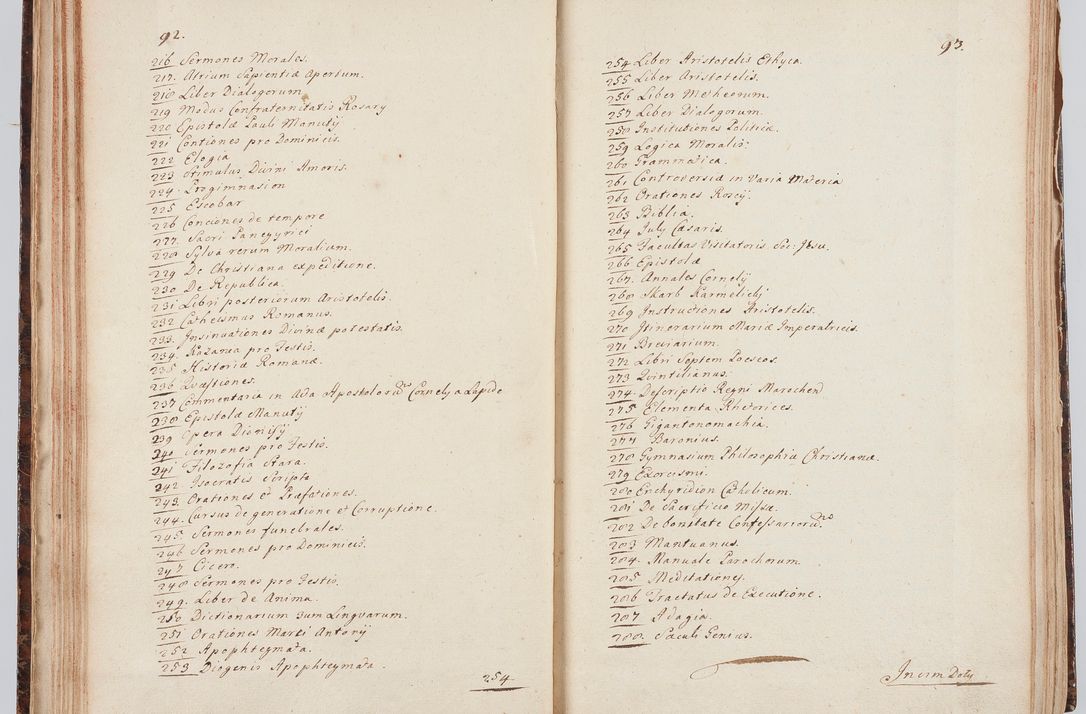 92.
216 Sermones Morales.
217. Atrium Sapientiæ Apertum.
218 Liber Dialogorum
219 Modus Confraternitatis Rosary
220 Epistolæ Pauli Manutÿ
221 Contiones pro Dominicis.
222 Elogia
223 Stimulus Divini Amoris.
224. Progimnasion
225 Escobar
226 Conciones de tempore
277. Sacri Panegyrici
228 Sylva rerum Moralium.
229 De Christiana expeditione.
230 De Republica.
231 Libri posteriorum Aristotelis.
232 Catheismus Romanus.
233. Insinuationes Divinæ potestatis.
234. Kazania pro Festis.
235 Historiæ Romanæ.
236 Quæstiones.
237 Commentaria in Acta Apostoloru Cornely a Lapide
238 Epistolæ Manutÿ
239 Opera Dionisÿ
240 Sermones pro Festis.
241 Filozofia Stara.
242. Isocratis Scripta
243. Orationes et Præfationes.
244. Cursus de generatione et Corruptione.
245 Sermones funebrales.
246 Sermones pro Dominicis.
247 Cicero.
248 Sermones pro Festis.
249. Liber de Anima.
250 Dictionarium 3um Linguarum.
251 Orationes Marci Antonÿ
252. Apophtegmata.
253 Diogenis Apophtegmata.
254
93.
254 Liber Aristotelis Ethyca.
255 Liber Aristotelis.
256 Liber Metheorum.
257 Liber Dialogorum.
258 Institutiones Politicæ.
259 Logica Moralis:
260 Grammatica.
261 Controversiæ in Varia Materia
262 Orationes Roscÿ.
263 Biblia.
264 July Cæsaris.
265 Facultas Visitatoris Soc: Jesu.
266 Epistolæ
267. Annales Cornelÿ
268 Skarb Karmelicki
269 Instructiones Aristotelis.
270 Itinerarium Mariæ Imperatricis.
271 Breviarium.
272 Libri Septem Poeseos.
273 Quintilianus.
274. Descriptio Regni Marochen
275 Elementa Rhetorices.
276 Gigantonomachia.
277 Baronius.
278 Gymnasium Philosophiæ Christianæ.
279 Exorcismi.
280 Enchyridion Catholicum.
281 De Sacrificio Missæ.
282 De bonitate Confessarioru
283 Mantuanus.
284. Manuale Parochorum.
285 Meditationes.
286 Tractatus de Executione.
287 Adagia.
288. Sæculi Genius.